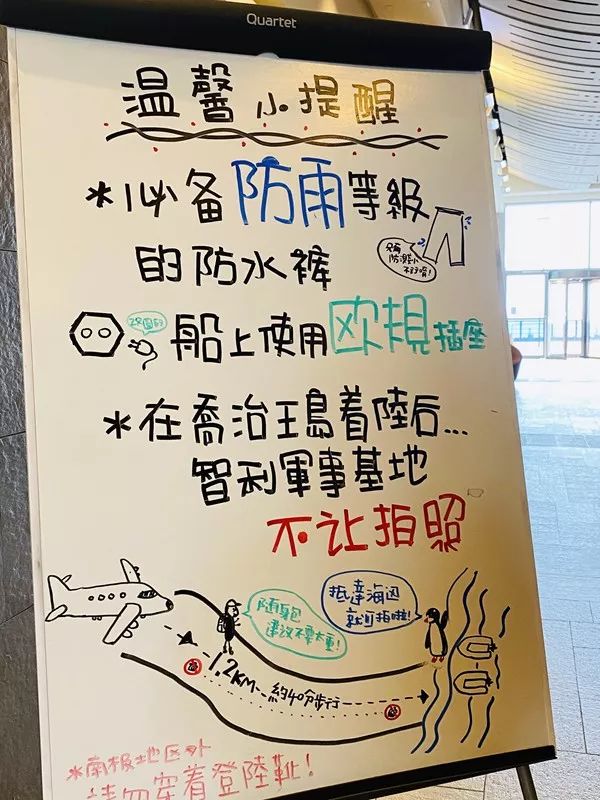 Quartet
温馨小提醒
*必备防雨等級
的防水裤
防潑小
不了唷!
2孔圆的
船上使用欧規插座
*在喬治王島着陸后...
智利軍事基地
不让拍照
随身包
建议不要太重!
抵達海边
就可拍啦!
1.2KM 約40分步行
*南极地区外
请勿穿着登陸靴!